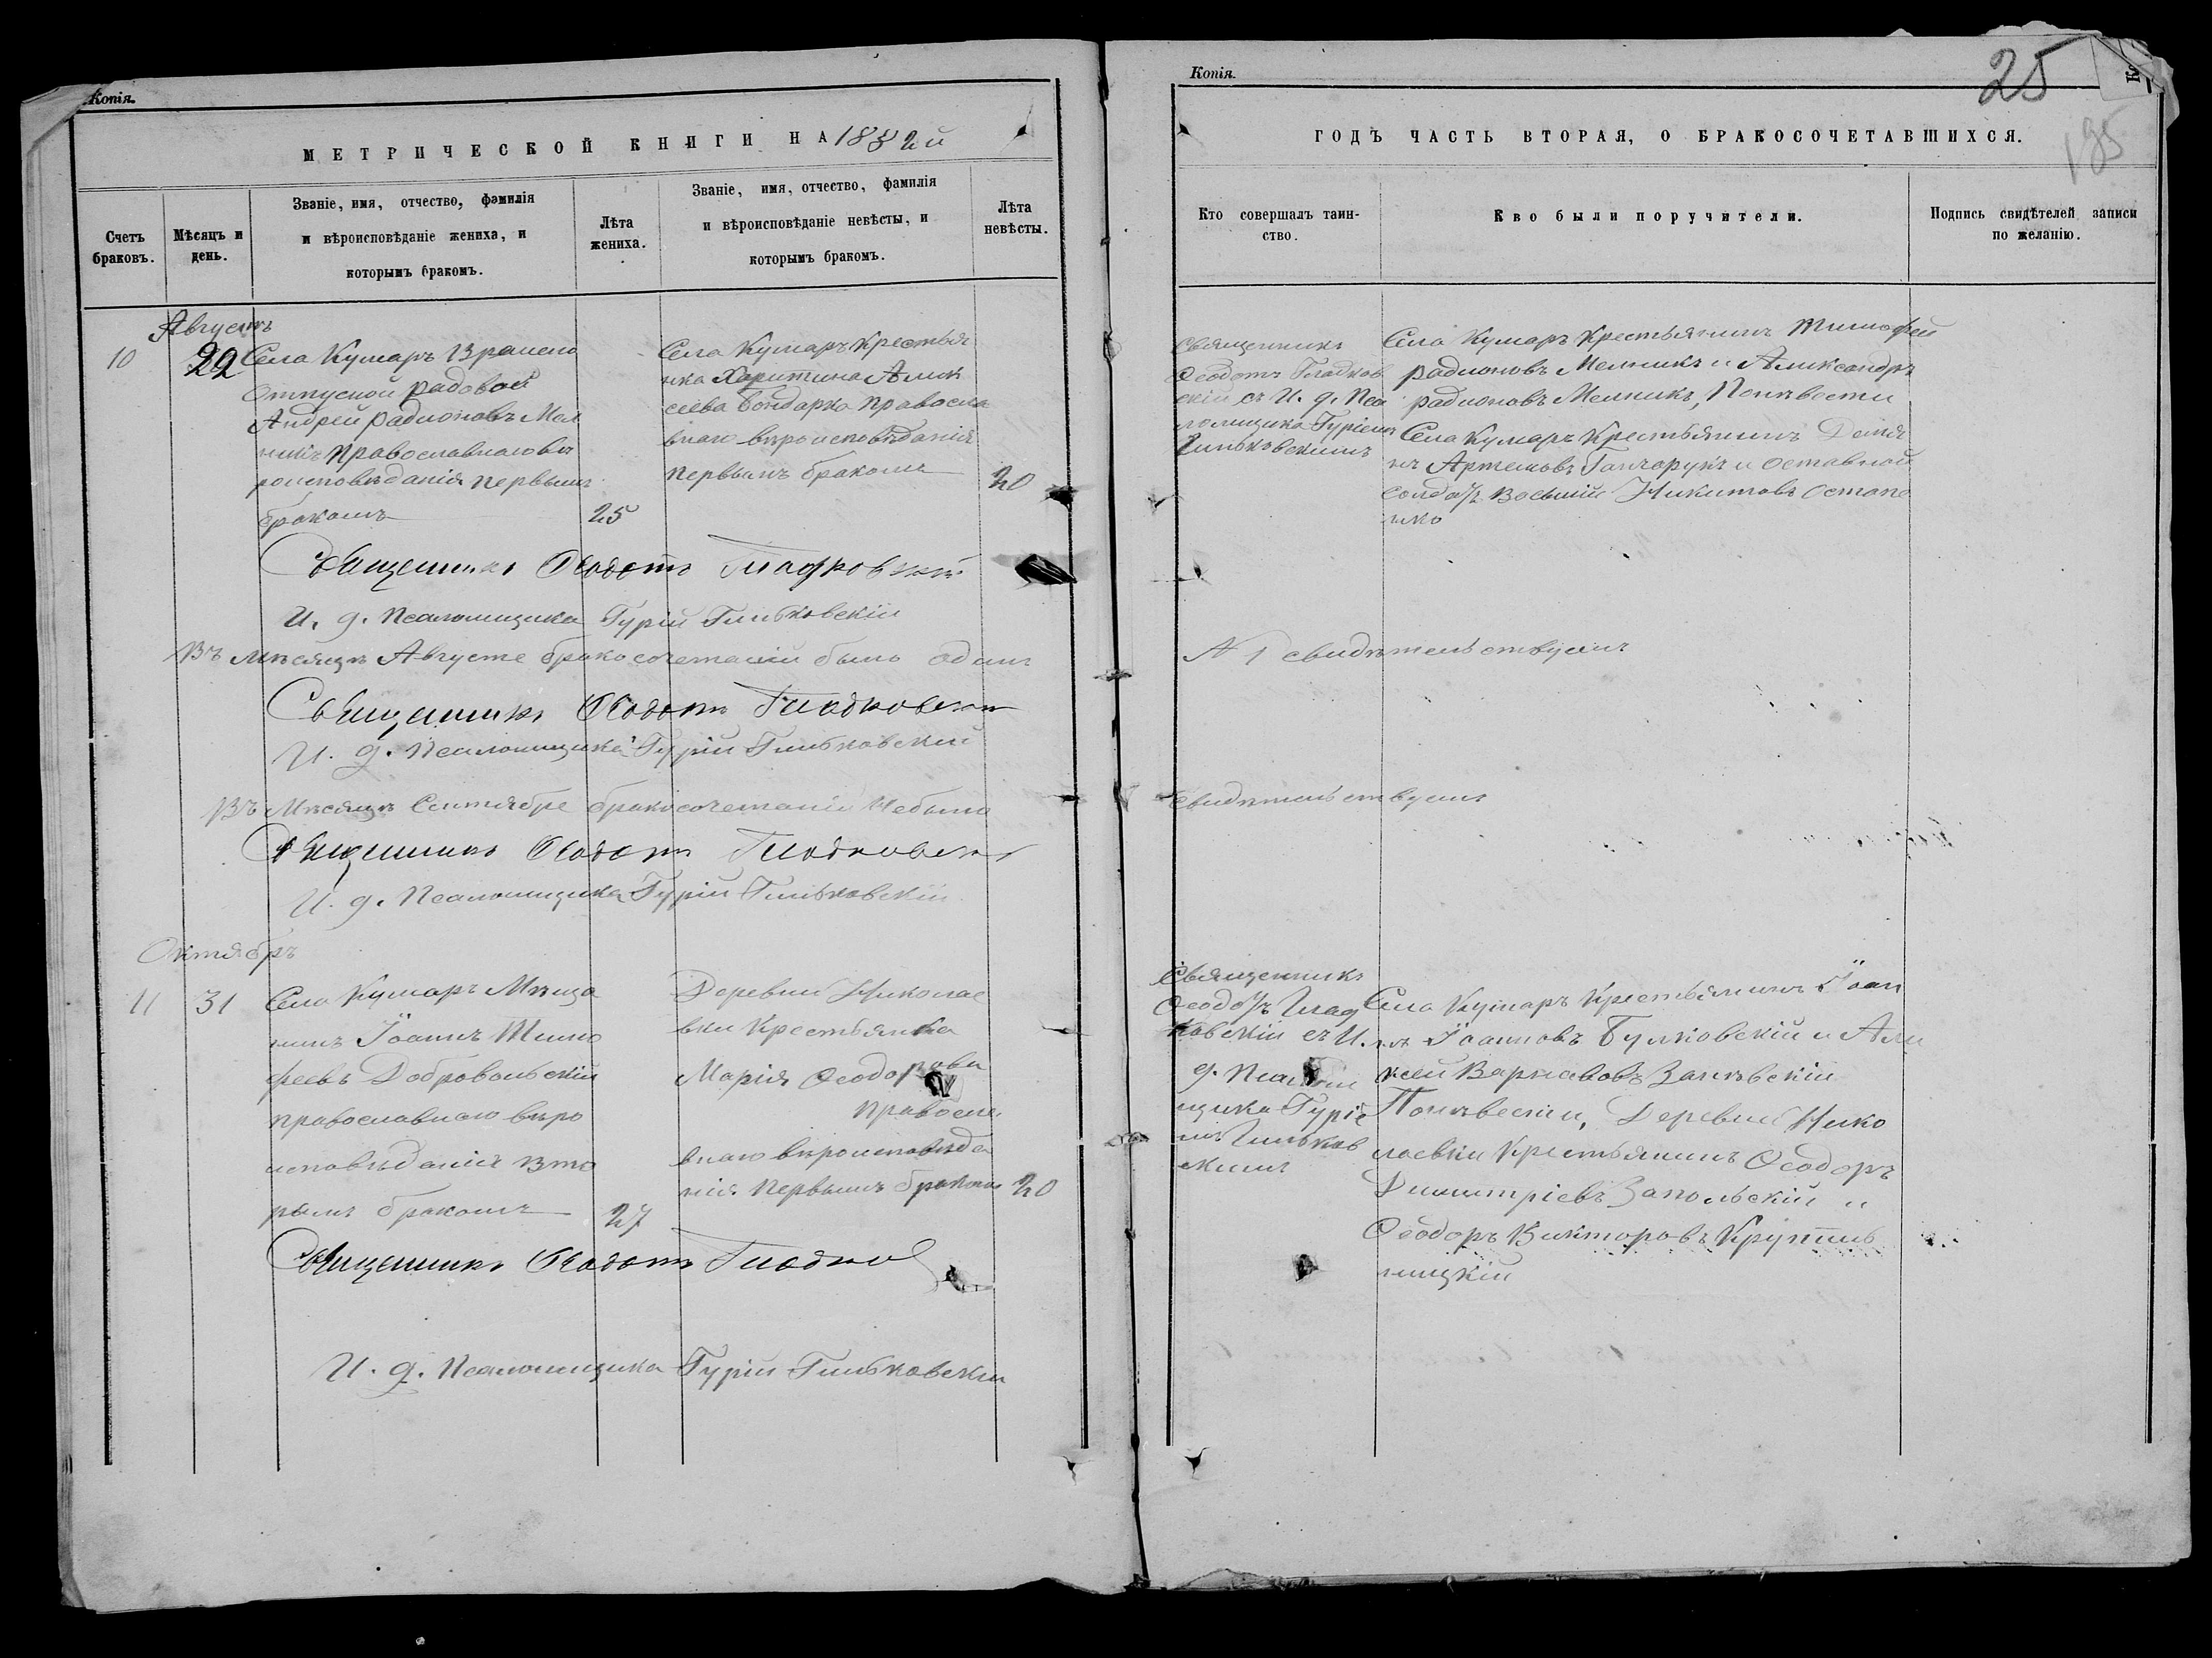 Копія.
МЕТРИЧЕСКОЙ КНИГИ НА 1882й
Счетъ браковъ.
Мѣсяцъ и день.
Званіе, имя, отчество, фамилія
и вѣроисповѣданіе жениха, и
которымъ бракомъ.
Лѣта жениха.
Званіе, имя, отчество, фамилія
и вѣроисповѣданіе невѣсты, и
которымъ бракомъ.
Лѣта невѣсты.
Августъ
10
22
Села Кумаръ Времено
Отпускной радовой
Андрей Радионовъ Мел
никъ Православнаго вѣ
роисповѣданія первымъ
бракомъ
25
Села Кумаръ Крестья
нка Харитина Алек
сеева Бондарко Правосла
внаго вѣроисповѣданія
первымъ бракомъ
20
Священникъ Ѳеодотъ Гладковскій
И. д. Псаломщика Гурій Гиньковскій
Въ мѣсяцѣ Августе бракосочетаній было одинъ
Священникъ Ѳеодотъ Гладковскій
И. д. Псаломщика Гурій Гиньковскій
Въ Мѣсяцѣ Сентябре бракосочетаній небыло
Священникъ Ѳеодотъ Гладковскій
И. д. Псаломщика Гурій Гиньковскій
Октябрь
11
31
Села Кумаръ Мѣща
нинъ Іоаннъ Тимо
феевъ Добровольскій
православнаго вѣро
исповѣданія Вто
рымъ бракомъ
27
Деревни Николае
вки Крестьянка
Марія Ѳеодорова
Правосла
внаго вѣроисповѣда
нія первымъ бракомъ
20
Священникъ Ѳеодотъ Гладков
И. д. Псаломщика Гурій Гиньковскій
Копія.
25
185
ГОДЪ ЧАСТЬ ВТОРАЯ, О БРАКОСОЧЕТАВШИХСЯ.
Кто совершалъ таин-
ство.
Кво были поручители.
Подпись свидѣтелей записи
по желанію.
Священникъ
Ѳеодотъ Гладков
скій съ И. д. Пса
ломщика Гуріемъ
Гиньковскимъ
Села Кумаръ Крестьянинъ Тимофей
радионовъ Мельникъ и Александръ
радионовъ Мельникъ, По невести
Села Кумаръ Крестьянинъ Демя
нъ Артемовъ Ганчарукъ и оставной
солдатъ Восилий Никитовъ Остапе
нко
№ 1 свидѣтельствуемъ
свидѣтельствуемъ
Священникъ
Ѳеодотъ Глад
ковскій съ И.
д. Псалом
щика Гуріе
мъ Гиньков
скимъ
Села Кумаръ Крестьянинъ Іоан
нъ Іоанновъ Булковскій и Але
ксей Варнавовъ
По невести, Деревни Нико
лаевки Крестьянинъ Ѳеодоръ
Димитріевъ Запольскій и
Ѳеодоръ Викторовъ Крупень
ницкій